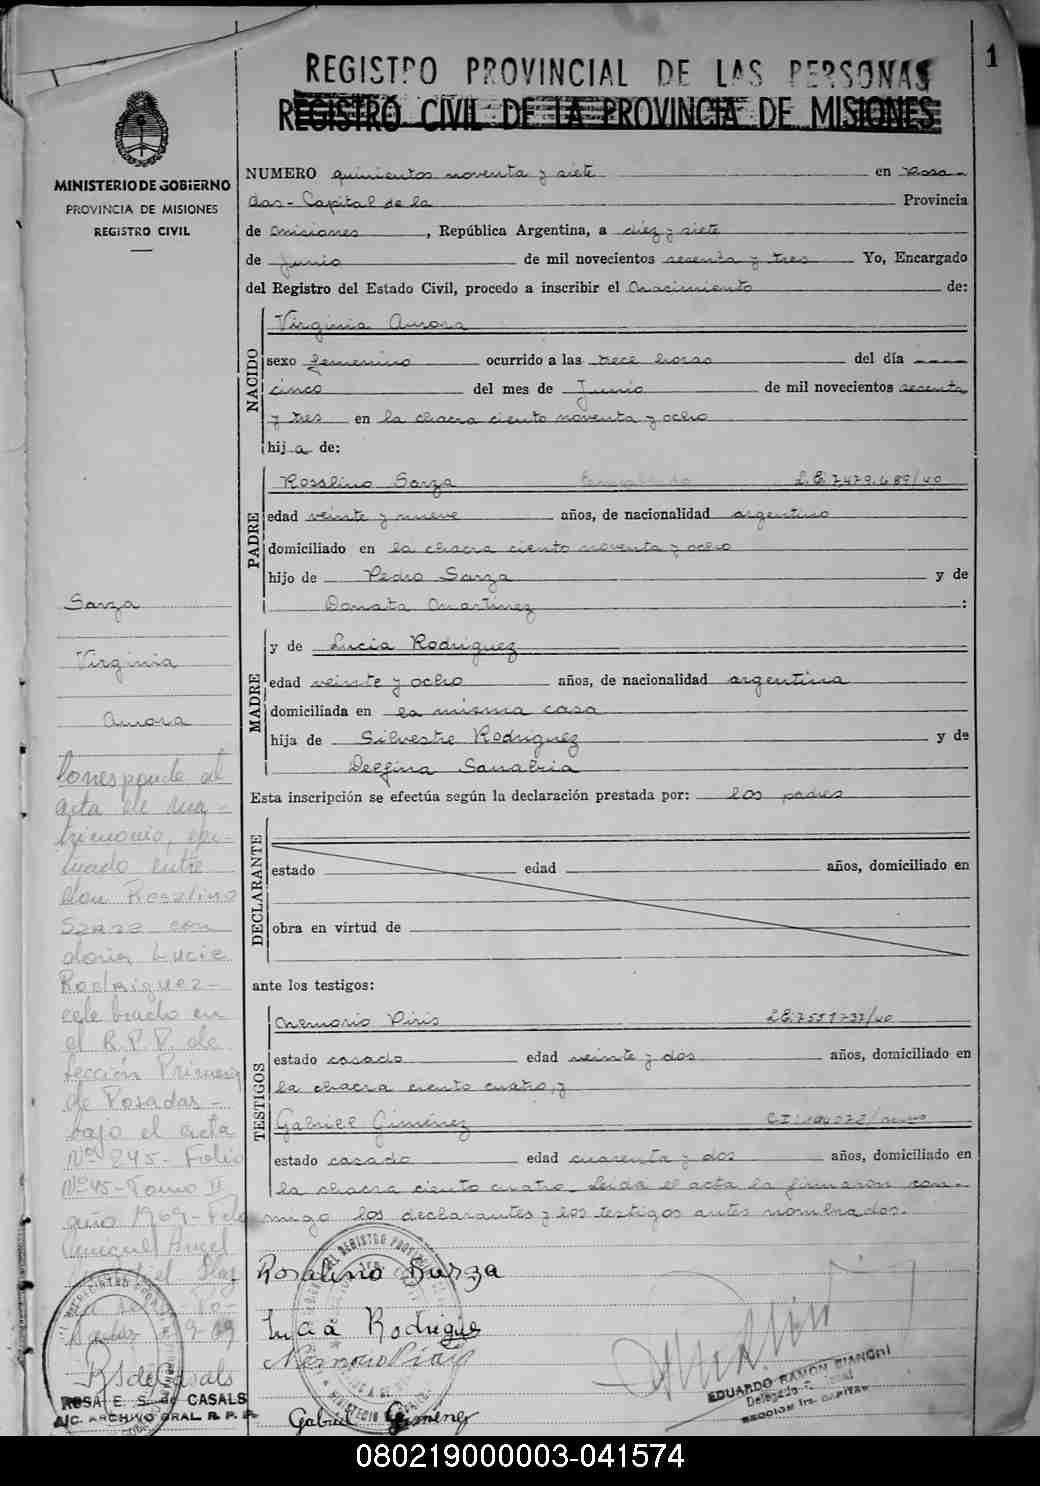 1
REGISTRO PROVINCIAL DE LAS PERSONAS
REGISTRO CIVIL DE LA PROVINCIA DE MISIONES
MINISTERIO DE GOBIERNO
PROVINCIA DE MISIONES
REGISTRO CIVIL
NUMERO quinientos noventa y siete en Posa-
das - Capital de la Provincia
de Misiones, República Argentina, a diez y siete
de Junio de mil novecientos sesenta y tres Yo, Encargado
del Registro del Estado Civil, procedo a inscribir el Nacimiento de:
NACIDO
Virginia Aurora
sexo femenino ocurrido a las trece horas del día
cinco del mes de Junio de mil novecientos sesenta
y tres en la chacra ciento noventa y ocho
hija de:
PADRE
Rosalino Sarza L.E. 7.479.689/40
edad veinte y nueve años, de nacionalidad argentino
domiciliado en la chacra ciento noventa y ocho
hijo de Pedro Sarza y de
Donata Martinez :
MADRE
y de Lucia Rodriguez
edad veinte y ocho años, de nacionalidad argentina
domiciliada en la misma casa
hija de Silvestre Rodriguez y de
Delfina Sanabria
Esta inscripción se efectúa según la declaración prestada por: los padres
DECLARANTE
estado edad años, domiciliado en
obra en virtud de
ante los testigos:
TESTIGOS
Nemorio Piris
estado casado edad veinte y dos años, domiciliado en
la chacra ciento cuatro, y
Gabriel Giménez
estado casado edad cuarenta y dos años, domiciliado en
la chacra ciento cuatro. Leida el acta la firmaron con-
migo los declarantes y los testigos antes nombrados.
Rosalino Sarza
Lucia Rodrigue
Nemorio Piris
Gabriel Gimenez
EDUARDO RAMON BIANCHI
SECCION 1ra. CAPITAL
Sarza
Virginia
Aurora
Corresponde al
acta de ma-
trimonio, efec-
tuado entre
don Rosalino
Sarza con
doña Lucia
Rodriguez-
celebrado en
el R.P.P. de
Sección Primera
de Posadas -
bajo el acta
Nº 245 - Folio
Nº 45 - Tomo II
año 1969 -
Angel
R S de Casals
ROSA E. S. de CASALS
A/C. ARCHIVO GRAL. R. P. P.
080219000003-041574